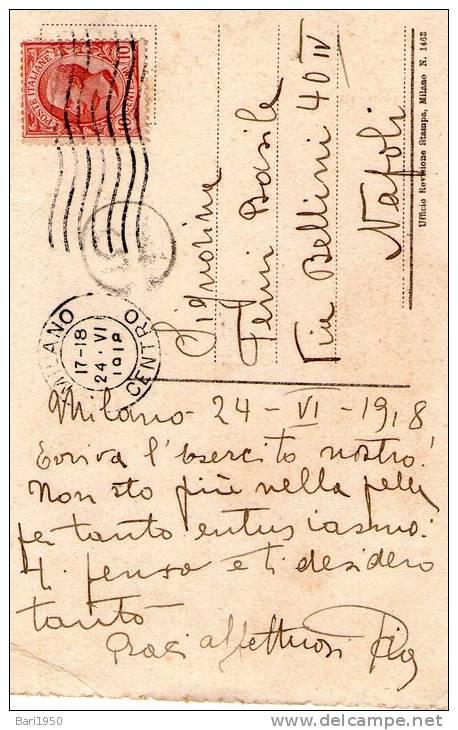 POSTE ITALIANE
CENTESIMI 10
MILANO
CENTRO
17-18
24·VI
1918
Signorina
Fanny Basile
Via Bellini 40 IV
Napoli
Ufficio Revisione Stampa, Milano N. 1462
Milano - 24 - VI - 1918
Evviva l'esercito nostro!
Non sto più nella pelle
per tanto entusiasmo.
penso e ti desidero
tanto
Baci affettuosi Pia
Bari1950
delcampe.net